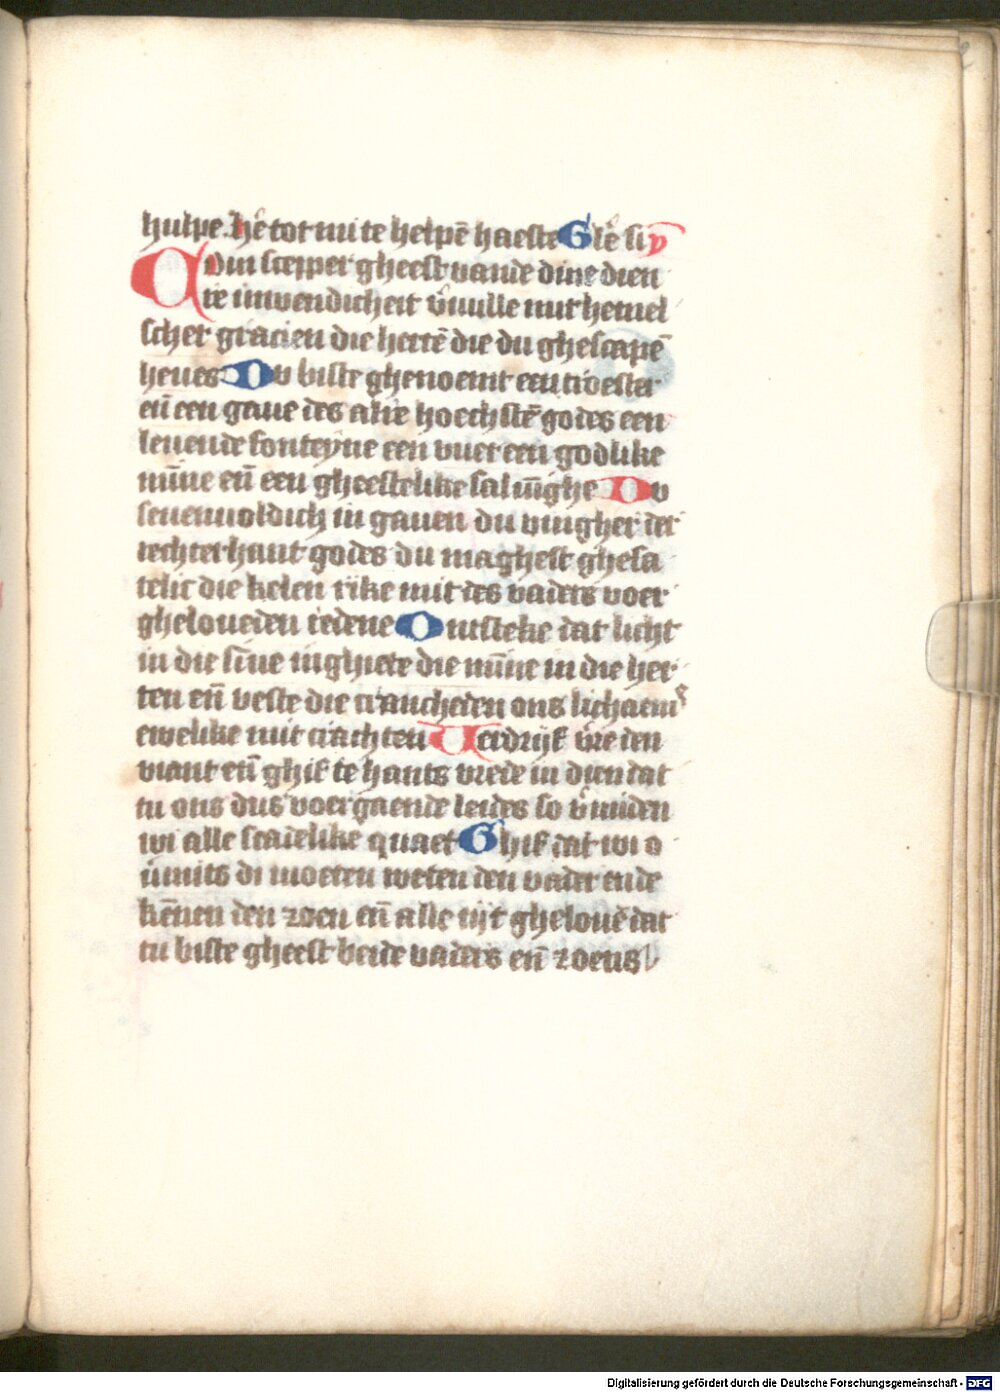 hulpe. H̄e tot mi te helpē haeste Glē si p̄
Com scepper gheest vande dine dien
re inwendicheit v̄vulle mit hemel
scher gracien die hertē die du ghescapē
heues Du biste ghenoemt een troester
en̄ een gaue des alre hoechstē godes een
leuende fonteyne een vuer een godlike
min̄e en̄ een gheestelike saluīghe Du
seuenuoldich in gauen du vingher der
rechterhant godes du maghest ghesa
telic die kelen rike mit des vaders voer
gheloueden redene Ontsteke dat licht
in die sin̄e inghiete die min̄e in die her
ten en̄ veste die crancheden ons lichaems
ewelike mit crachten Uerdrijf v̄re den
viant en̄ ghif te hants vrede in dien dat
tu ons dus voergaende leides so v̄miden
wi alle scadelike quaet Ghif dat wi o
ūmits di moeten weten den vader ende
kēnen den zoen en̄ alle tijt ghelouē dat
tu biste gheest beide vaders en̄ zoens
Digitalisierung gefördert durch die Deutsche Forschungsgemeinschaft - DFG